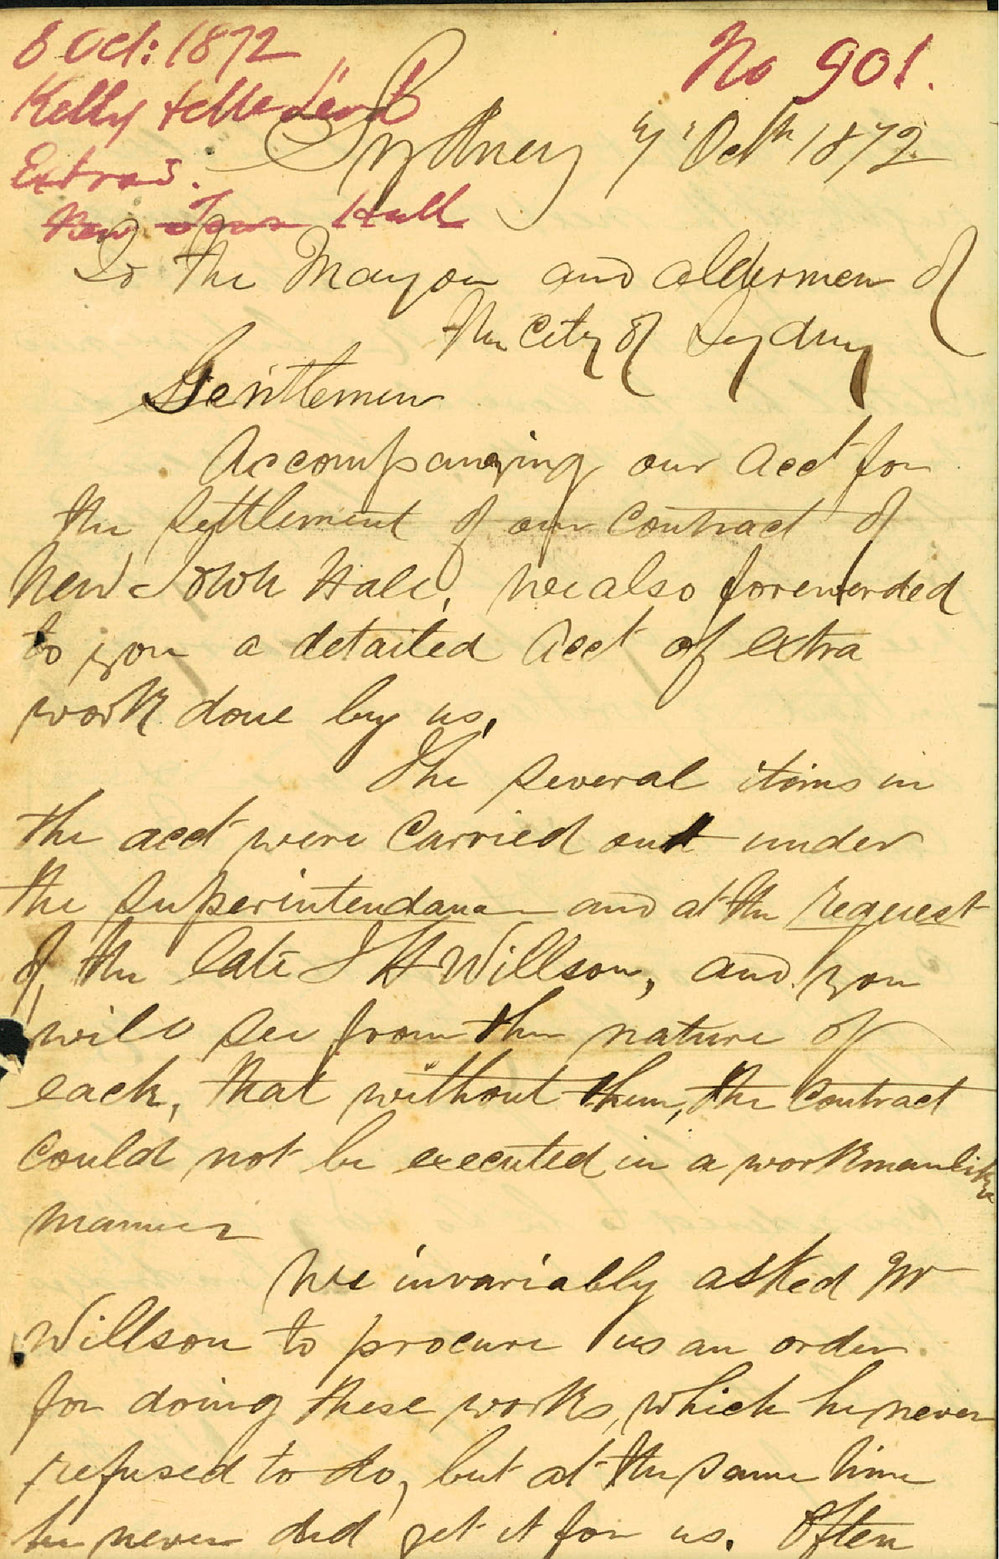 8 Oct: 1872
No 901.
Kelly & McLeod
Sydney 7 Octh 1872
Extras.
New Town Hall
To the Mayor and aldermen of
the City of Sydney
Gentlemen
Accompanying our acct for
the settlement of our contract of
New Town Hall, we also forewarded
to you a detailed acct of extra
work done by us,
The several items in
the acct were carried out under
the superintendance and at the request
of the late J H Willson, and you
will see from the nature of
each, that without them, the contract
could not be executed in a workmanlike
manner
We invariably asked Mr
Willson to procure us an order
for doing these works, which he never
refused to do, but at the same time
he never did get it for us. Often